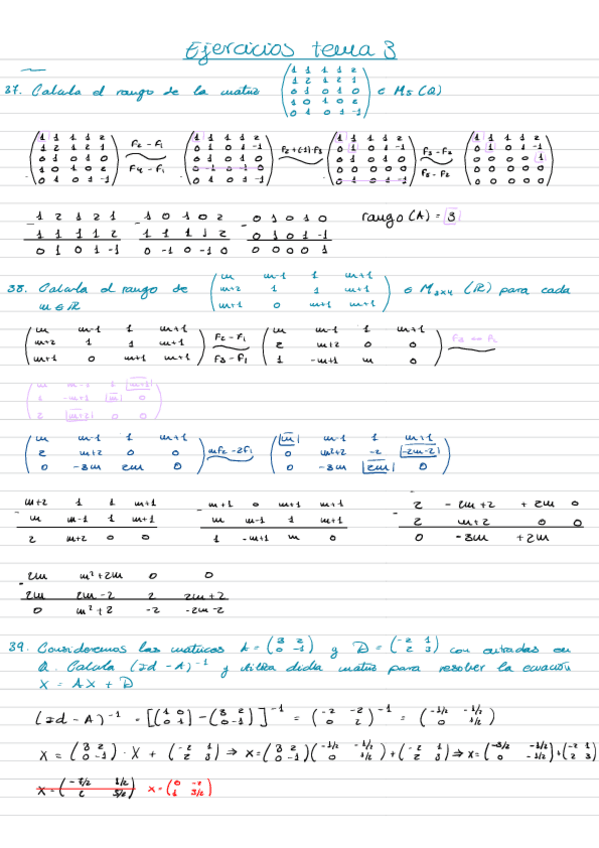 Ejercicios tema 3
37. Calcula el rango de la matriz
1 1 1 1 2
1 2 1 2 1
0 1 0 1 0
1 0 1 0 2
0 1 0 1 -1
∈ M5 (Q)
1 1 1 1 2
1 2 1 2 1
0 1 0 1 0
1 0 1 0 2
0 1 0 1 -1
F2 - F1
F4 - F1
1 1 1 1 2
0 1 0 1 -1
0 1 0 1 0
0 -1 0 -1 0
0 1 0 1 -1
1 1 1 1 2
0 1 0 1 -1
0 1 0 1 0
0 0 0 0 0
0 1 0 1 -1
F3 - F2
F5 - F2
1 1 1 1 2
0 1 0 1 -1
0 0 0 0 1
0 0 0 0 0
0 0 0 0 0
- 1 2 1 2 1
1 1 1 1 2
0 1 0 1 -1
- 1 0 1 0 2
1 1 1 1 2
0 -1 0 -1 0
- 0 1 0 1 0
0 1 0 1 -1
0 0 0 0 1
rango (A) = 3
38. Calcula el rango de
m m-1 1 m+1
m+2 1 1 m+1
m+1 0 m+1 m+1
∈ M3x4 (R) para cada
m ∈ R
m m-1 1 m+1
m+2 1 1 m+1
m+1 0 m+1 m+1
F2 - F1
F3 - F1
m m-1 1 m+1
2 m+2 0 0
1 -m+1 m 0
m m-1 1 m+1
1 -m+1 m 0
2 m+2 0 0
m m-1 1 m+1
2 m+2 0 0
0 -3m 2m 0
mF2 - 2F1
m m-1 1 m+1
0 m²+2 -2 -2m-2
0 -3m 2m 0
- m+2 1 1 m+1
m m-1 1 m+1
2 m+2 0 0
- m+1 0 m+1 m+1
m m-1 1 m+1
1 -m+1 m 0
- 2 -2m+2 +2m 0
2 m+2 0 0
0 -3m +2m
- 2m m²+2m 0 0
2m 2m-2 2 2m+2
0 m²+2 -2 -2m-2
39. Consideremos las matrices A = (3 2 0 -1) y D = (-2 1 2 3) con entradas en
Q. Calcula (Id - A)⁻¹ y utiliza dicha matriz para resolver la ecuación
X = AX + D
(Id - A)⁻¹ = [(1 0 0 1) - (3 2 0 -1)]⁻¹ = (-2 -2 0 2)⁻¹ = (-1/2 -1/2 0 1/2)